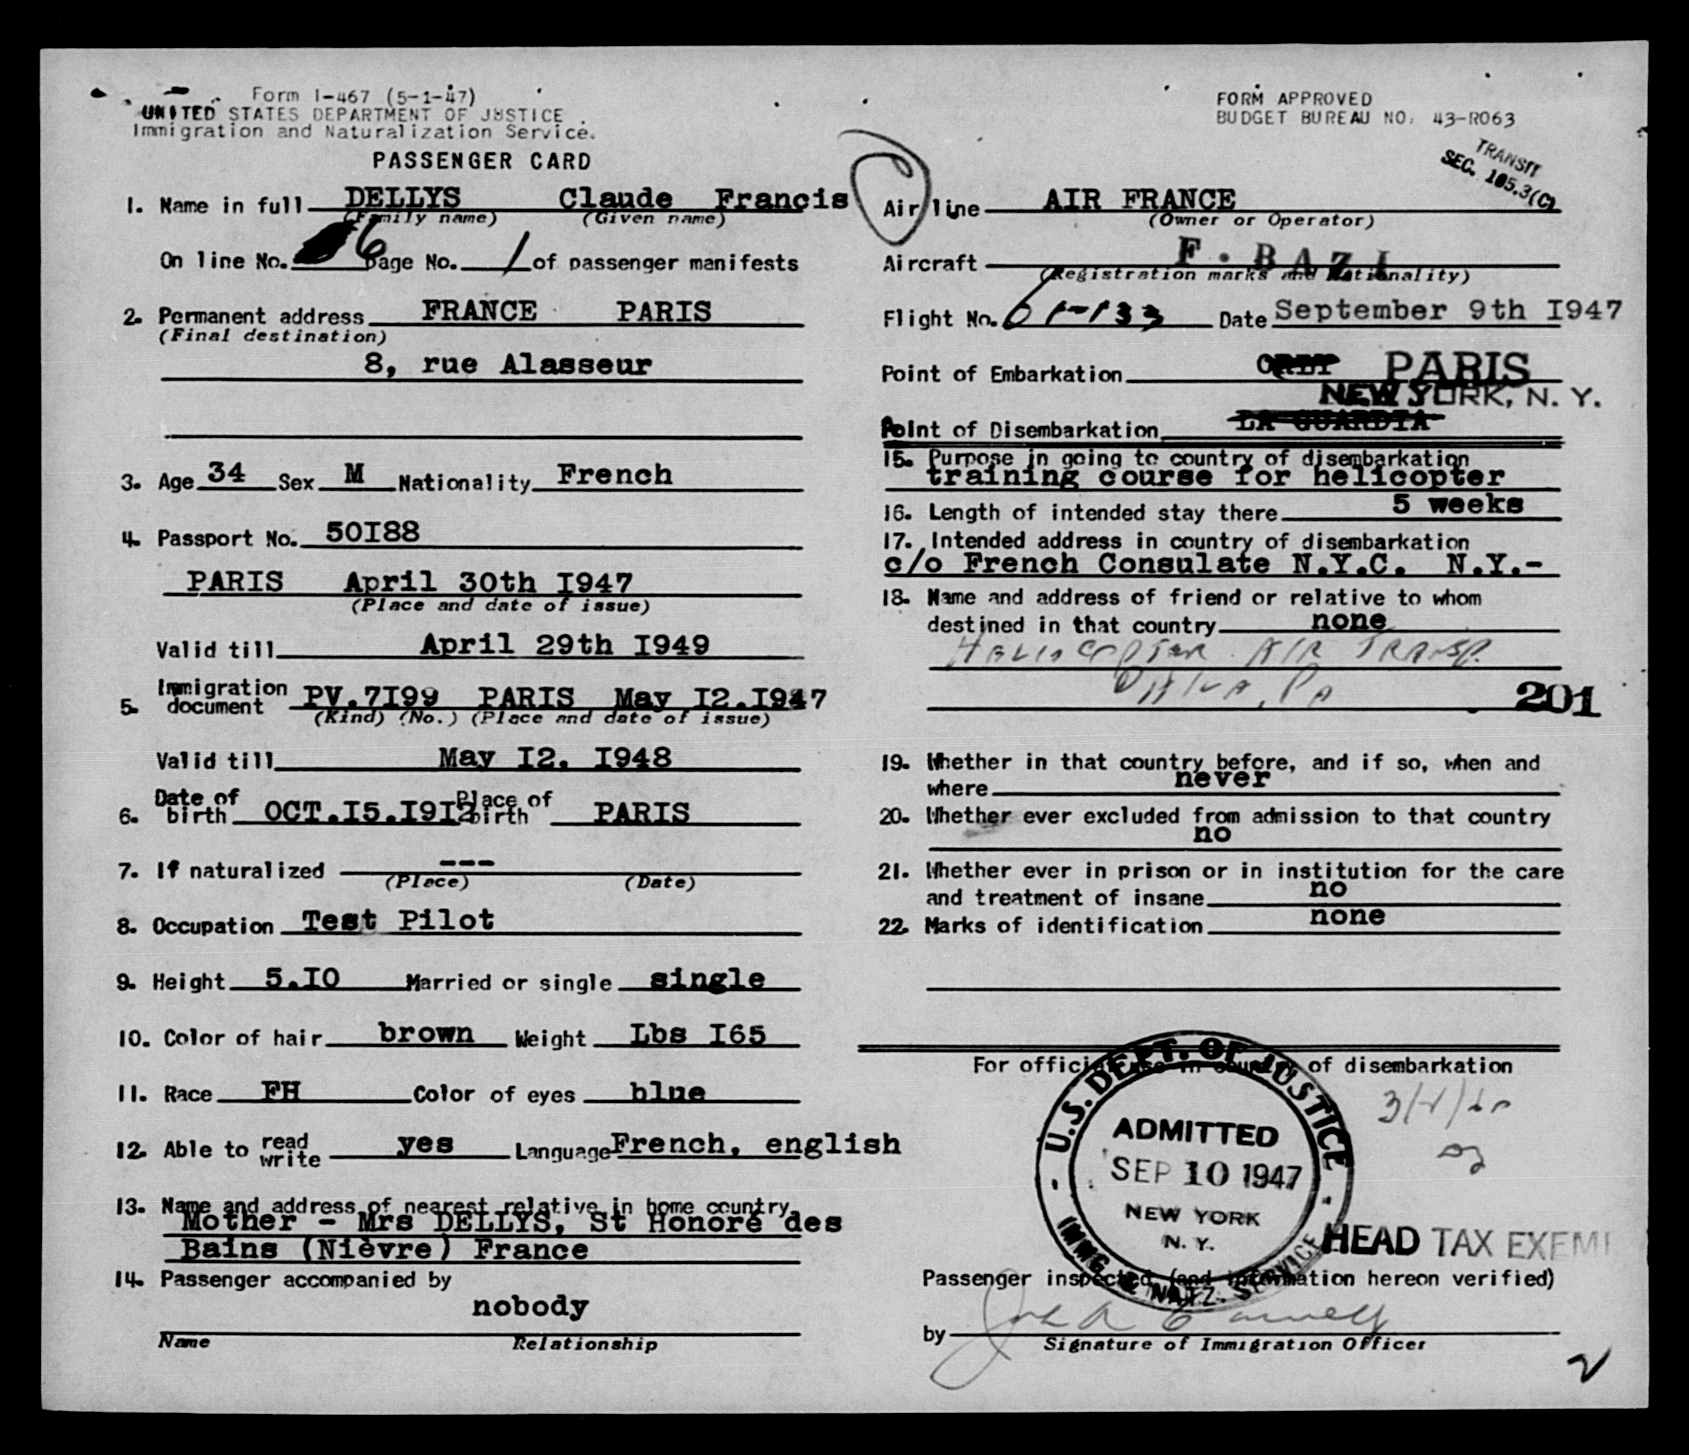 Form I-467 (5-1-47)
UNITED STATES DEPARTMENT OF JUSTICE
Immigration and Naturalization Service.
PASSENGER CARD
FORM APPROVED
BUDGET BUREAU NO. 43-R063
TRANSIT
SEC. 105.3(C)
1. Name in full DELLYS Claude Francis
(Family name) (Given name)
On line No. 6 page No. 1 of passenger manifests
2. Permanent address FRANCE PARIS
(Final destination)
8, rue Alasseur
3. Age 34 Sex M Nationality French
4. Passport No. 50I88
PARIS April 30th I947
(Place and date of issue)
Valid till April 29th I949
5. Immigration document PV.7I99 PARIS May I2.I947
(Kind) (No.) (Place and date of issue)
Valid till May I2. I948
6. Date of birth OCT.I5.I9I2 Place of birth PARIS
7. If naturalized ---
(Place) (Date)
8. Occupation Test Pilot
9. Height 5.IO Married or single single
10. Color of hair brown Weight Lbs I65
11. Race FH Color of eyes blue
12. Able to read write yes Language French, english
13. Name and address of nearest relative in home country
Mother - Mrs DELLYS, St Honoré des
Bains (Nièvre) France
14. Passenger accompanied by
nobody
Name Relationship
Air line AIR FRANCE
(Owner or Operator)
Aircraft F.BAZI
(Registration marks and Nationality)
Flight No. 61-133 Date September 9th I947
Point of Embarkation ORLY PARIS
NEW YORK, N. Y.
Point of Disembarkation LA GUARDIA
15. Purpose in going to country of disembarkation
training course for helicopter
16. Length of intended stay there 5 weeks
17. Intended address in country of disembarkation
c/o French Consulate N.Y.C. N.Y.-
18. Name and address of friend or relative to whom
destined in that country none
HELICOPTER AIR TRANSP.
PHILA, PA
201
19. Whether in that country before, and if so, when and
where never
20. Whether ever excluded from admission to that country
no
21. Whether ever in prison or in institution for the care
and treatment of insane no
22. Marks of identification none
For official use in country of disembarkation
U.S. DEPT. OF JUSTICE
ADMITTED
SEP 10 1947
NEW YORK
N. Y.
IMMG. & NATZ. SERVICE
HEAD TAX EXEM
Passenger inspected (and information hereon verified)
by
Signature of Immigration Officer
2